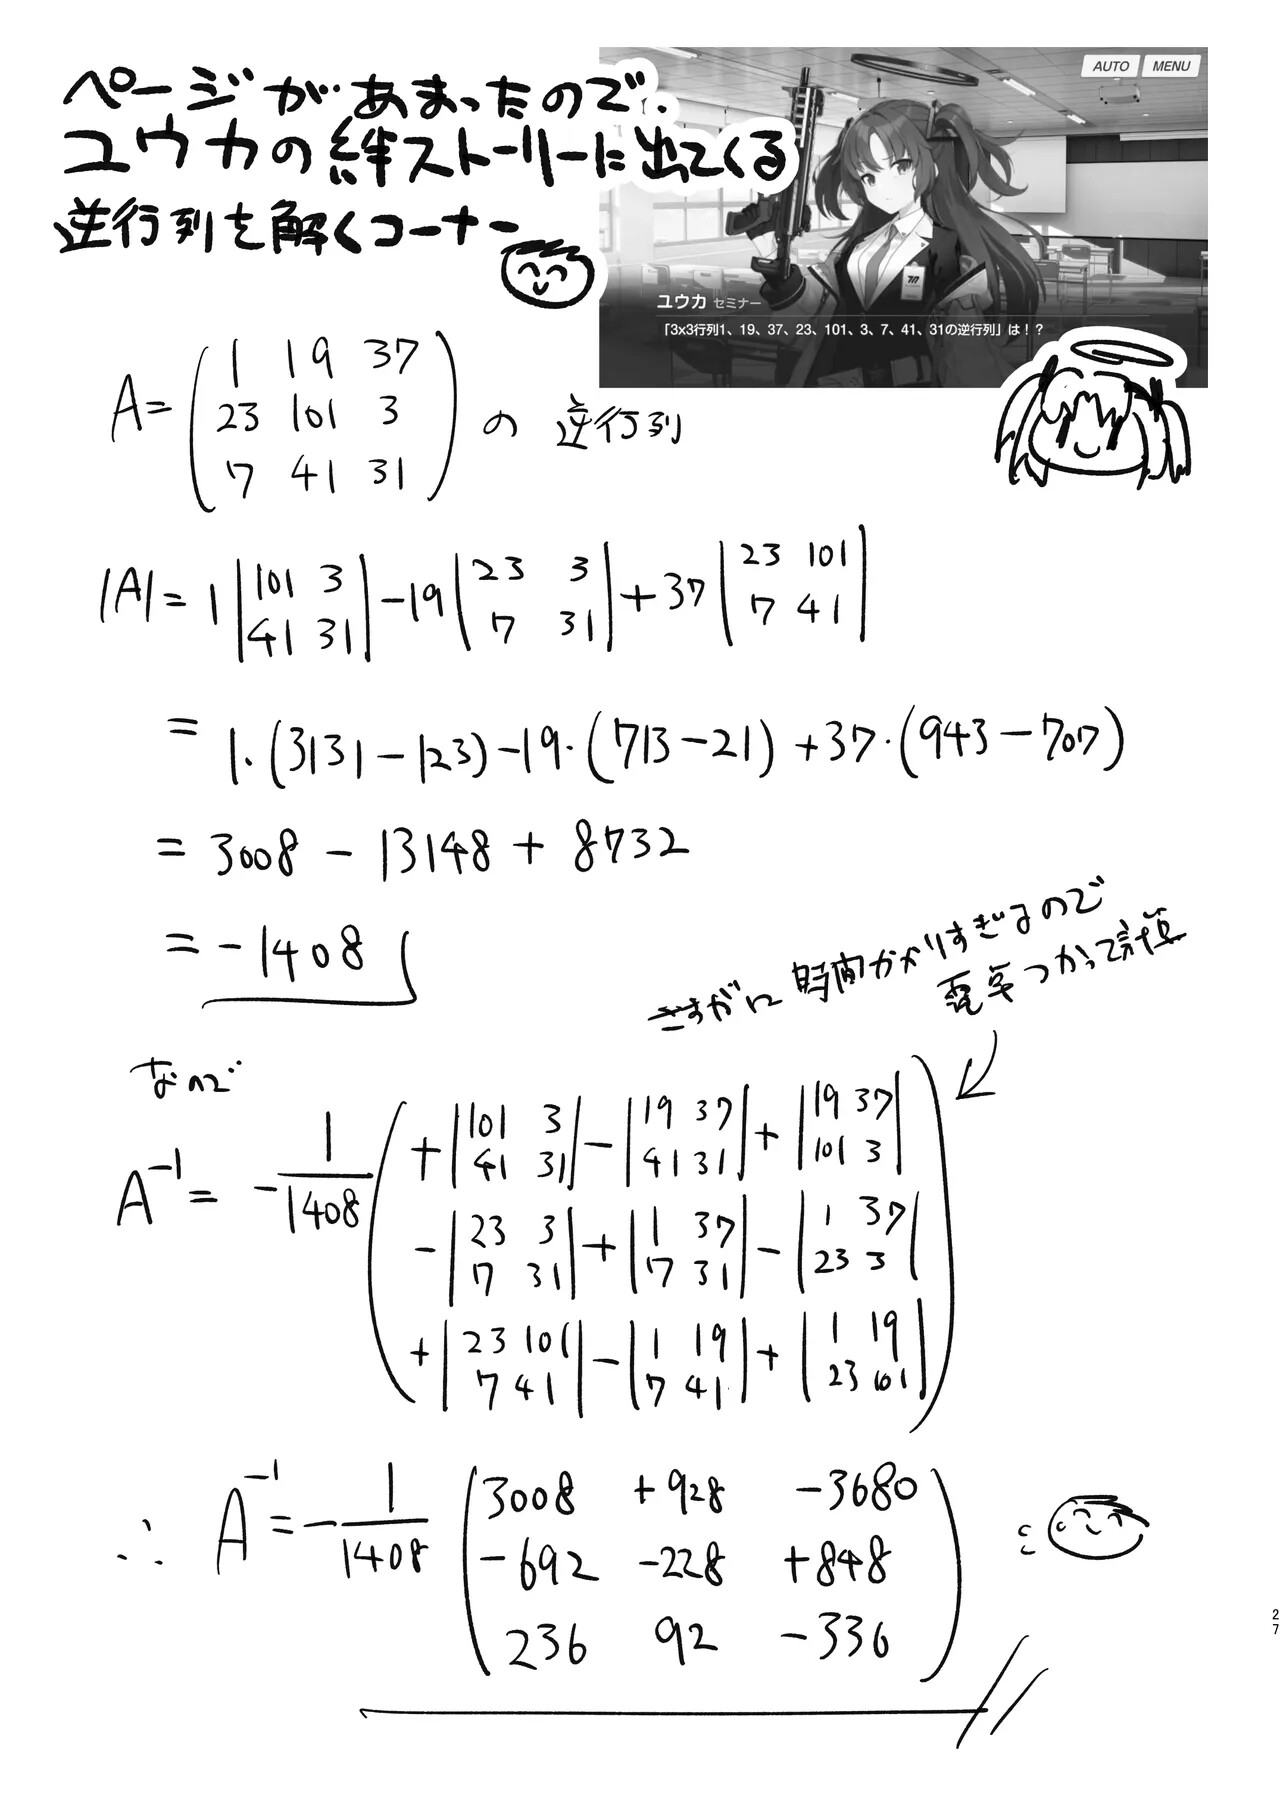 ページがあまったので、
ユウカの絆ストーリーに出てくる
逆行列を解くコーナー
AUTO MENU
ユウカ セミナー
「3x3行列1、19、37、23、101、3、7、41、31の逆行列」は！？
1 19 37
A= 23 101 3 の 逆行列
7 41 31
|A| = 1 |101 3| -19 |23 3| +37 |23 101|
|41 31| |7 31| |7 41|
= 1·(3131-123)-19·(713-21)+37·(943-707)
= 3008 - 13148 + 8732
= -1408
さすがに時間かかりすぎるので
電卓つかって計算
なので
A⁻¹ = -1/1408
+|101 3| -|19 37| +|19 37|
|41 31| |41 31| |101 3|
-|23 3| +|1 37| -|1 37|
|7 31| |7 31| |23 3|
+|23 101| -|1 19| +|1 19|
|7 41| |7 41| |23 101|
∴ A⁻¹ = -1/1408
3008 +928 -3680
-692 -228 +848
236 92 -336
27